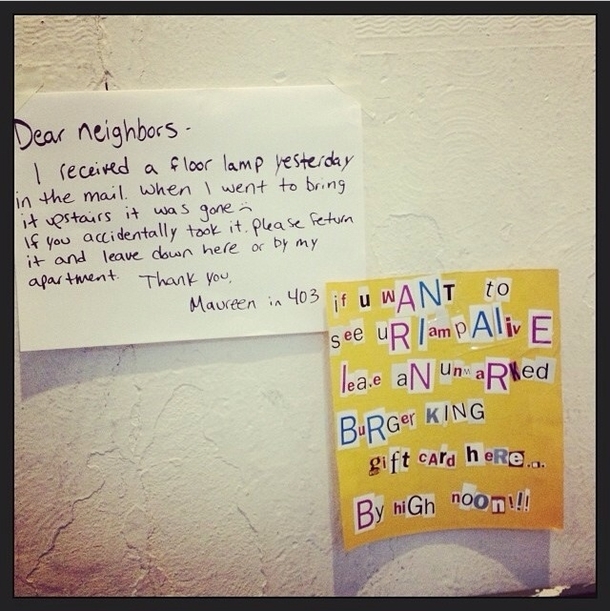 Dear neighbors -
I received a floor lamp yesterday
in the mail. When I went to bring
it upstairs it was gone :(
If you accidentally took it. please return
it and leave down here or by my
apartment. Thank you,
Maureen in 403
if u wANT to
see uR lampAlivE
leave aN UnmaRked
BuRGer KING
gift cARd heRe...
By hiGh noon!!!